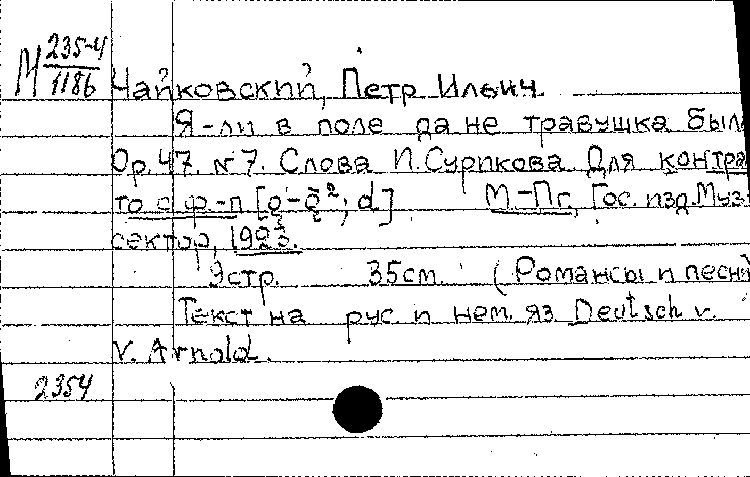 М 235-4
1186
Чайковский, Петр Ильич.
Я-ли в поле да не травушка был
Ор. 47. № 7. Слова И. Сурикова. Для контра
то с ф.-п М.-Пг., Гос. изд. Муз.
сектор, 1923.
9 стр. 35 см. (Романсы и песни)
Текст на рус. и нем. яз. Deutsch v.
V. Arnold.
2354